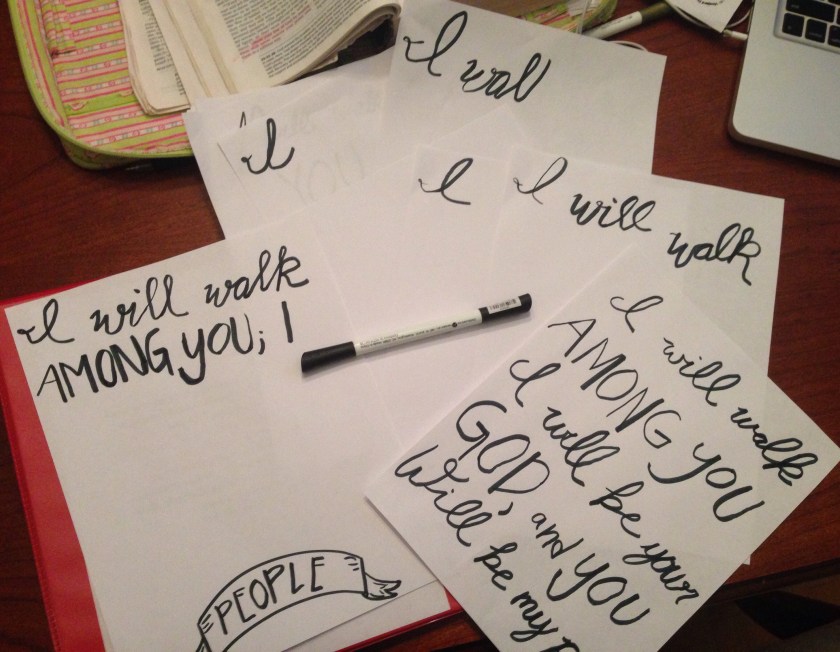 I wal
I
I
I will
walk
I will walk
AMONG YOU; I
PEOPLE
I will walk
AMONG YOU
I will be your
GOD, and YOU
Will be my